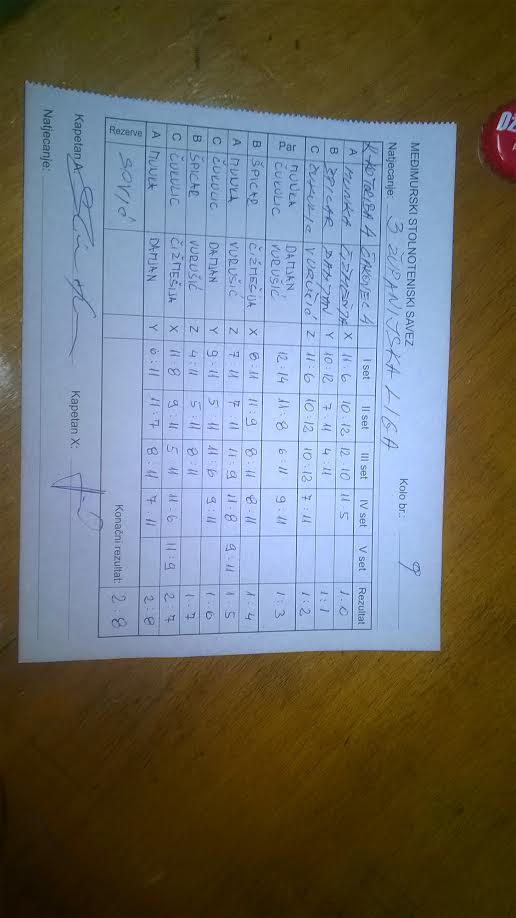 MEĐIMURSKI STOLNOTENISKI SAVEZ
Natjecanje: 3 ŽUPANIJSKA LIGA Kolo br.: 9
KOTORIBA 4 ČAKOVEC 4 I set II set III set IV set V set Rezultat
A X 11:6 10:12 12:10 11 5 1:0
B ŠPICAR DAMJAN Y 10:12 7:11 4:11 1:1
C VURUŠIĆ Z 11:6 10:12 10:12 7:11 1:2
Par ČUKULIC DAMJAN VURUŠIĆ 12:14 11:8 6:11 9:11 1:3
B ŠPICAR ČIŽMEŠIJA X 8:11 11:9 8:11 8:11 1:4
A VURUŠIĆ Z 7:11 7:11 11:9 11:8 9:11 1:5
C ČUKULIC DAMJAN Y 9:11 5:11 11:6 9:11 1:6
B ŠPICAR VURUŠIĆ Z 4:11 5:11 8:11 1:7
C ČUKULIC ČIŽMEŠIJA X 11:8 9:11 5:11 11:6 11:9 2:7
A DAMJAN Y 6:11 11:7 8:11 7:11 2:8
Rezerve SOVIĆ Konačni rezultat: 2:8
Kapetan A: Kapetan X:
Natjecanje: